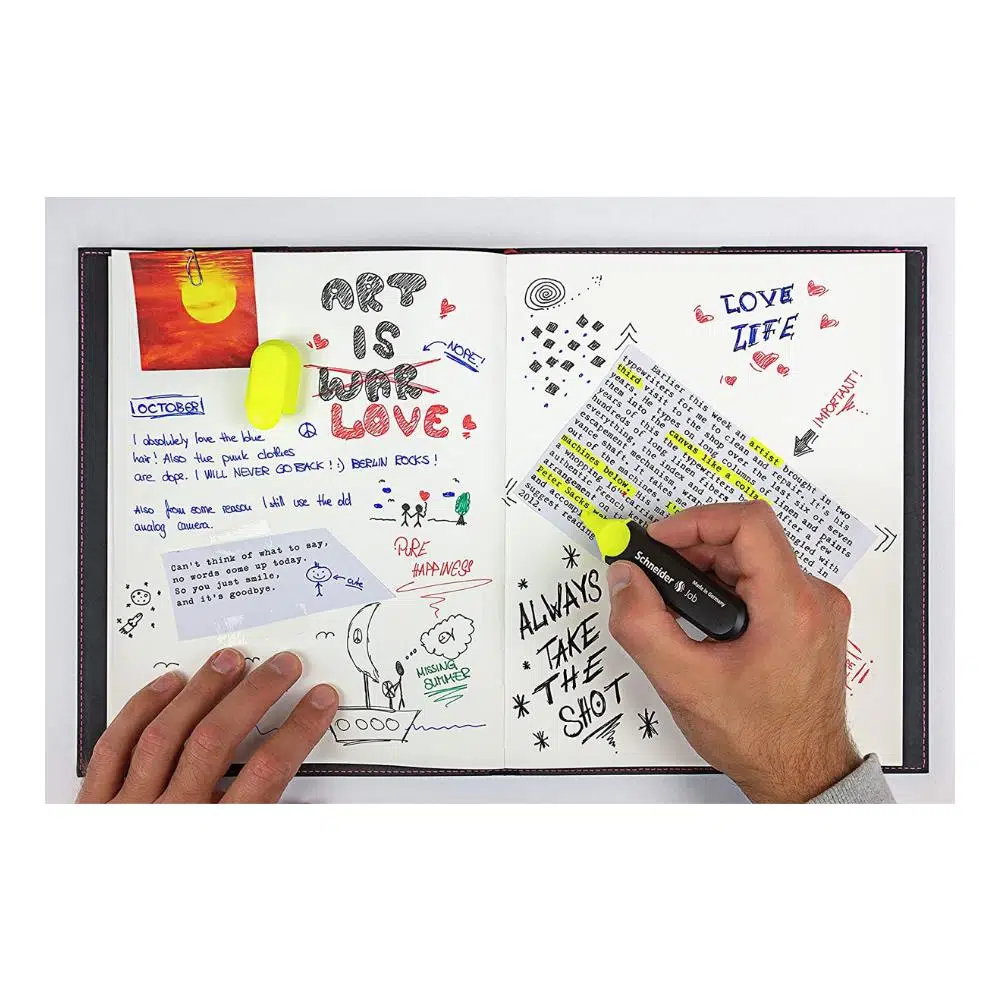 ART
IS
WAR
LOVE
NOPE!
1 OCTOBER!
I absolutely love the blue
hair! Also the punk clothes
are dope. I WILL NEVER GO BACK! :) BERLIN ROCKS!
Also from some reason I still use the old
analog camera.
Can't think of what to say,
no words come up today.
So you just smile,
and it's goodbye.
cute
PURE
HAPPINESS
MISSING
SUMMER
LOVE
LIFE
IMPORTANT!
Earlier this week an artist brought in two
typewriters for me to clean and repair. It's his
third visit to the shop over the last six or seven
years. He types on long columns of linen and paints
them into
canvas like a colla
After a few
hundreds of
long linen fibers
tangled with
everything,
the typewriters
mechanism, wrap
index and
vance shaft. It takes
out of the machines.
machines below.
a whopping
authentic French
arrangement on
Peter Sacks
and accompl
suggest
reading
2012.
ALWAYS
TAKE
THE
SHOT
Schneider
Job
Made in Germany